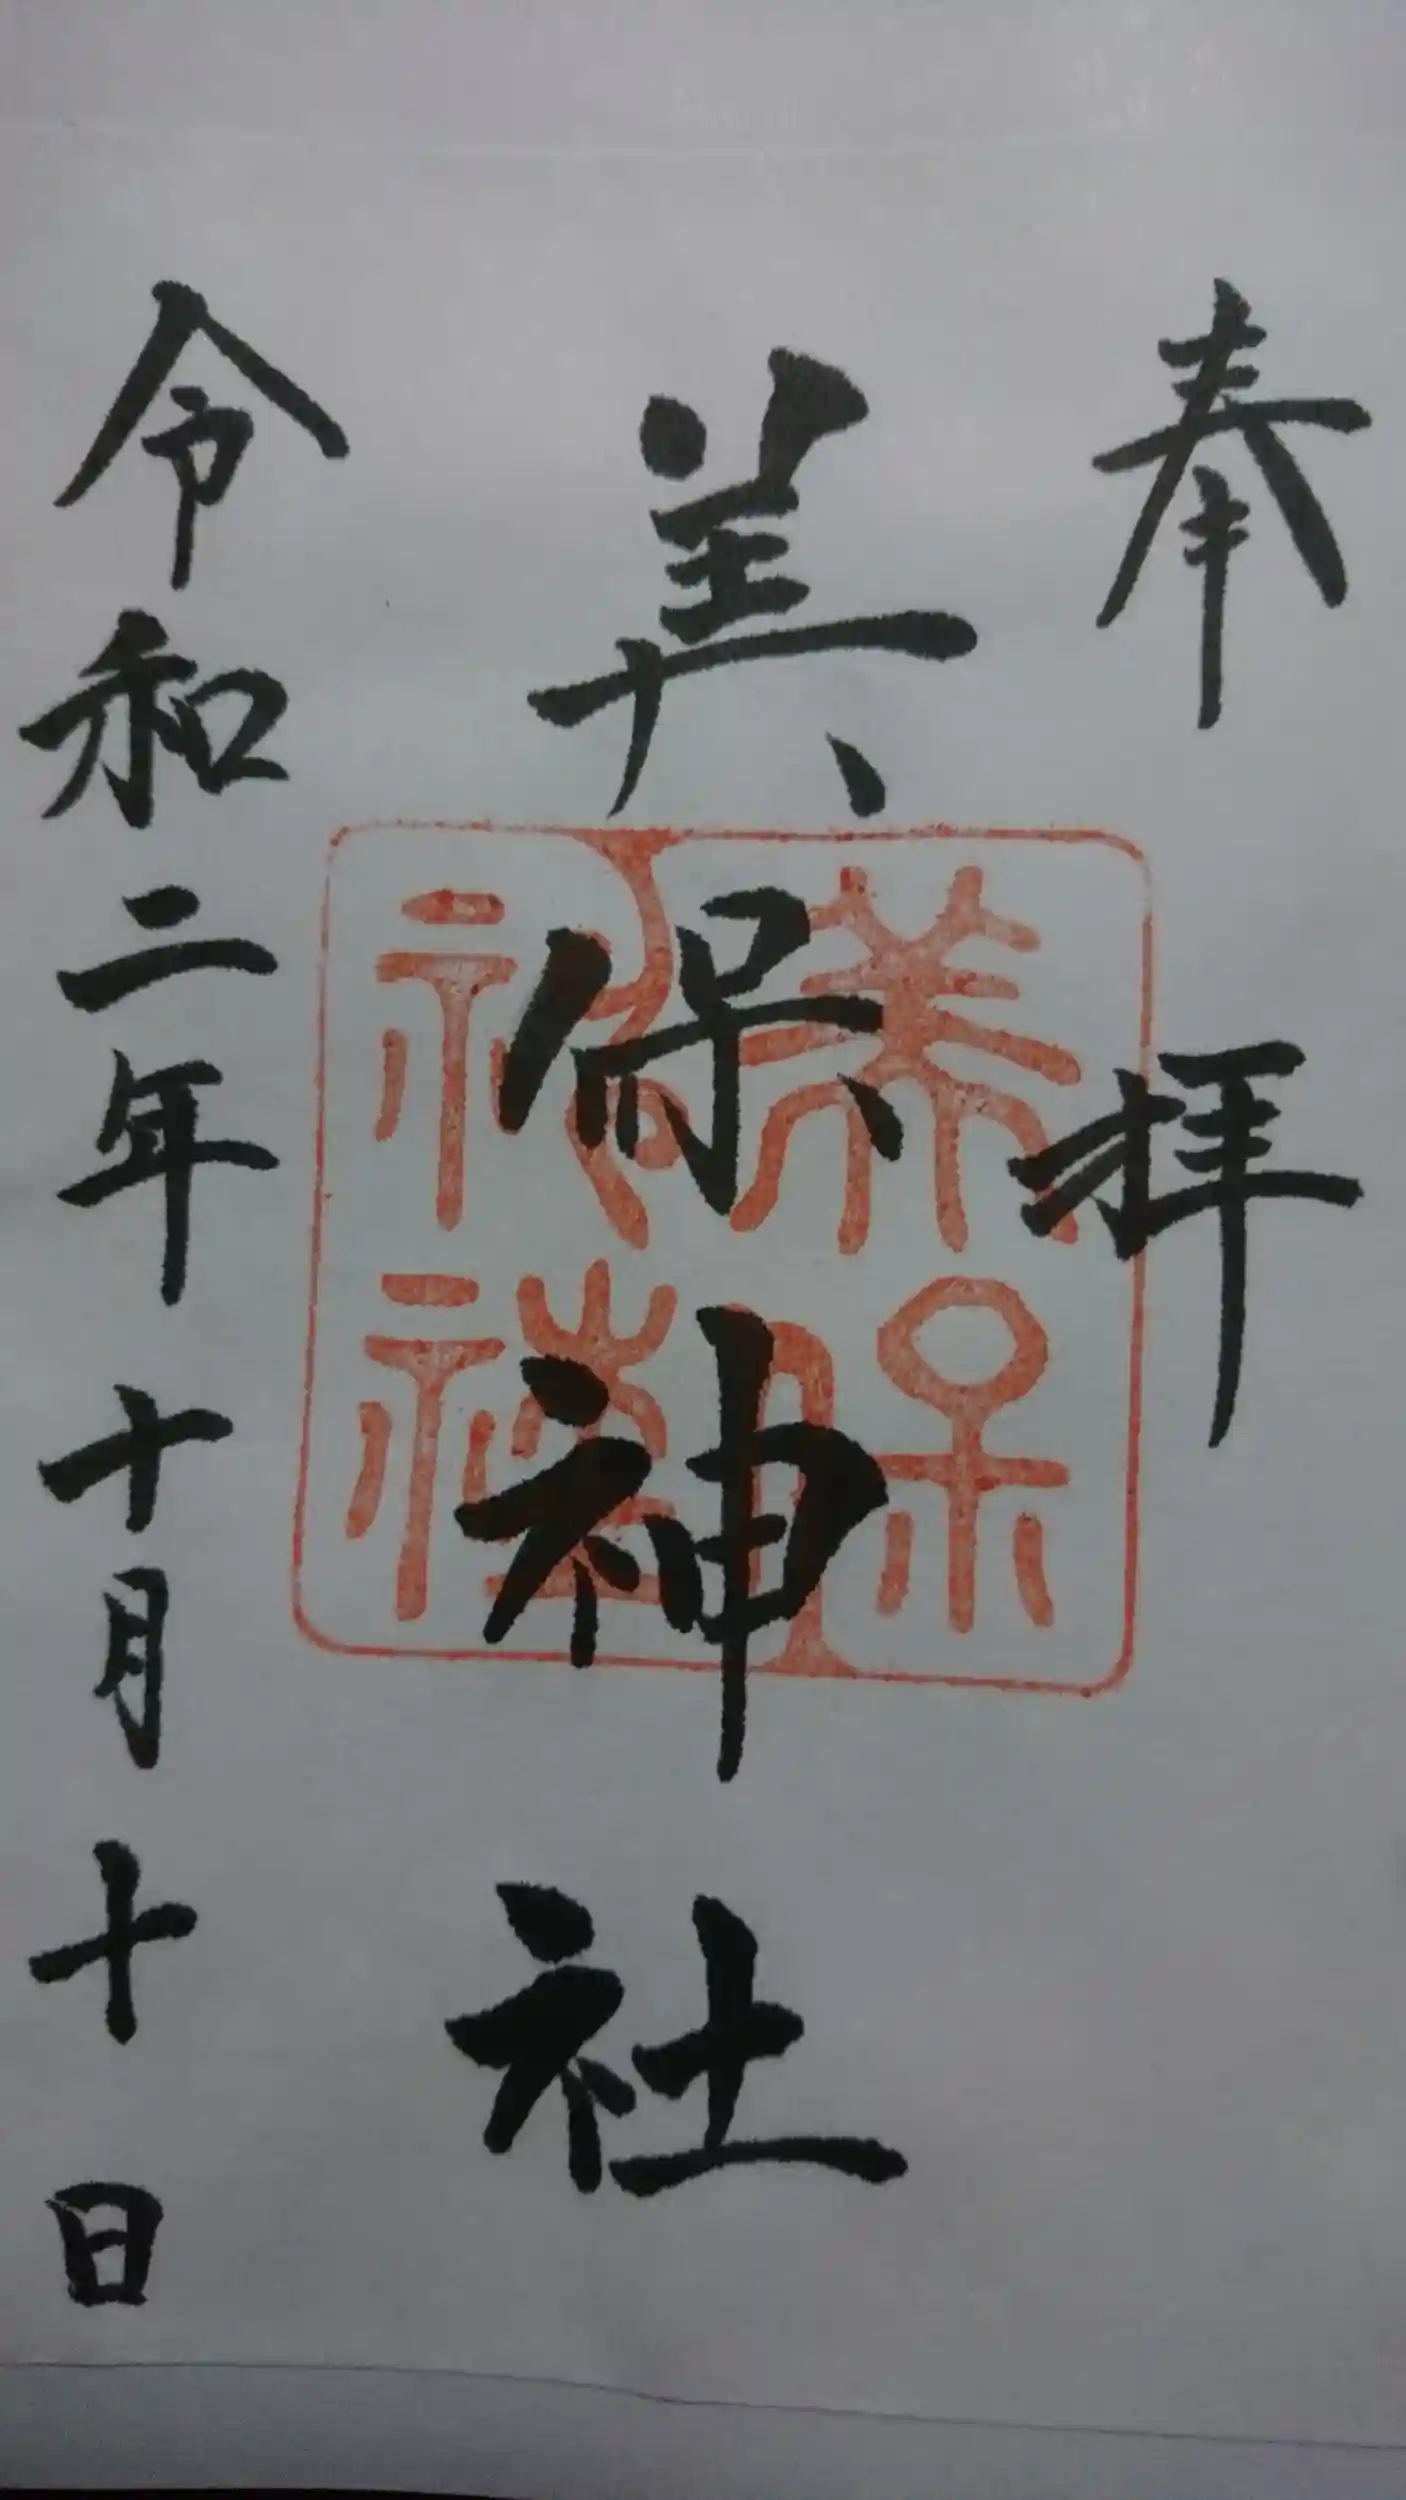 奉拝
美保神社
美保神社
令和二年十月十日